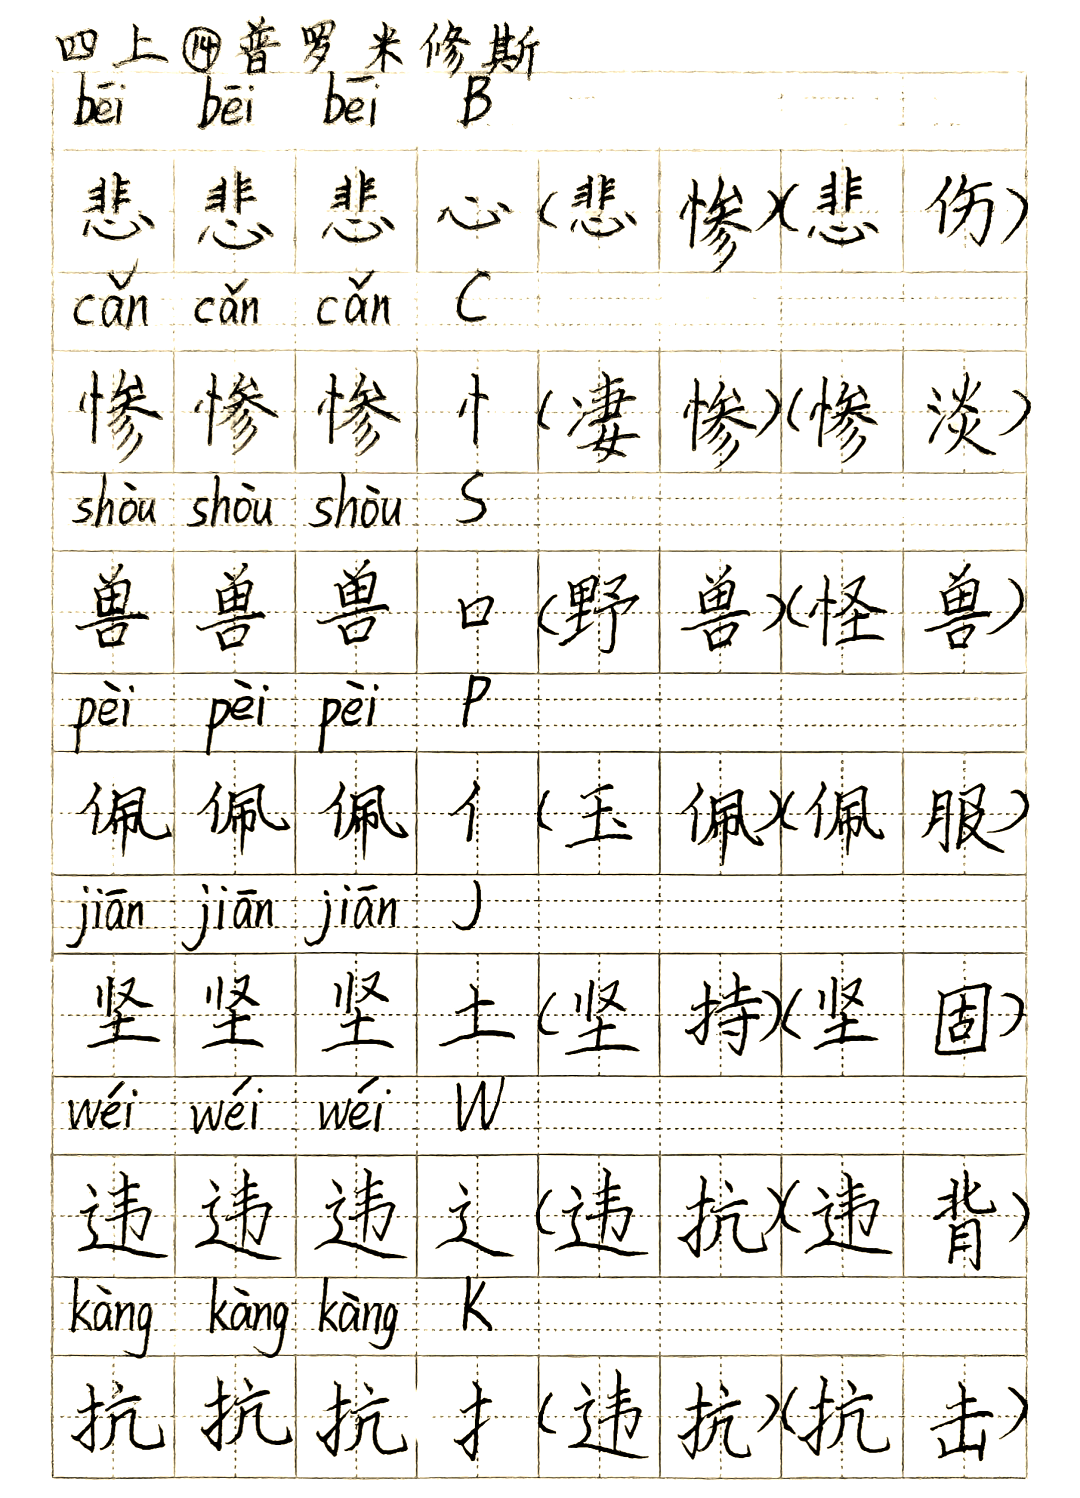 四上⑭普罗米修斯
bēi bēi bēi B
悲 悲 悲 心 (悲惨)(悲伤)
cǎn cǎn cǎn C
惨 惨 惨 忄 (凄惨)(惨淡)
shòu shòu shòu S
兽 兽 兽 口 (野兽)(怪兽)
pèi pèi pèi P
佩 佩 佩 亻 (玉佩)(佩服)
jiān jiān jiān J
坚 坚 坚 土 (坚持)(坚固)
wéi wéi wéi W
违 违 违 辶 (违抗)(违背)
kàng kàng kàng K
抗 抗 抗 扌 (违抗)(抗击)